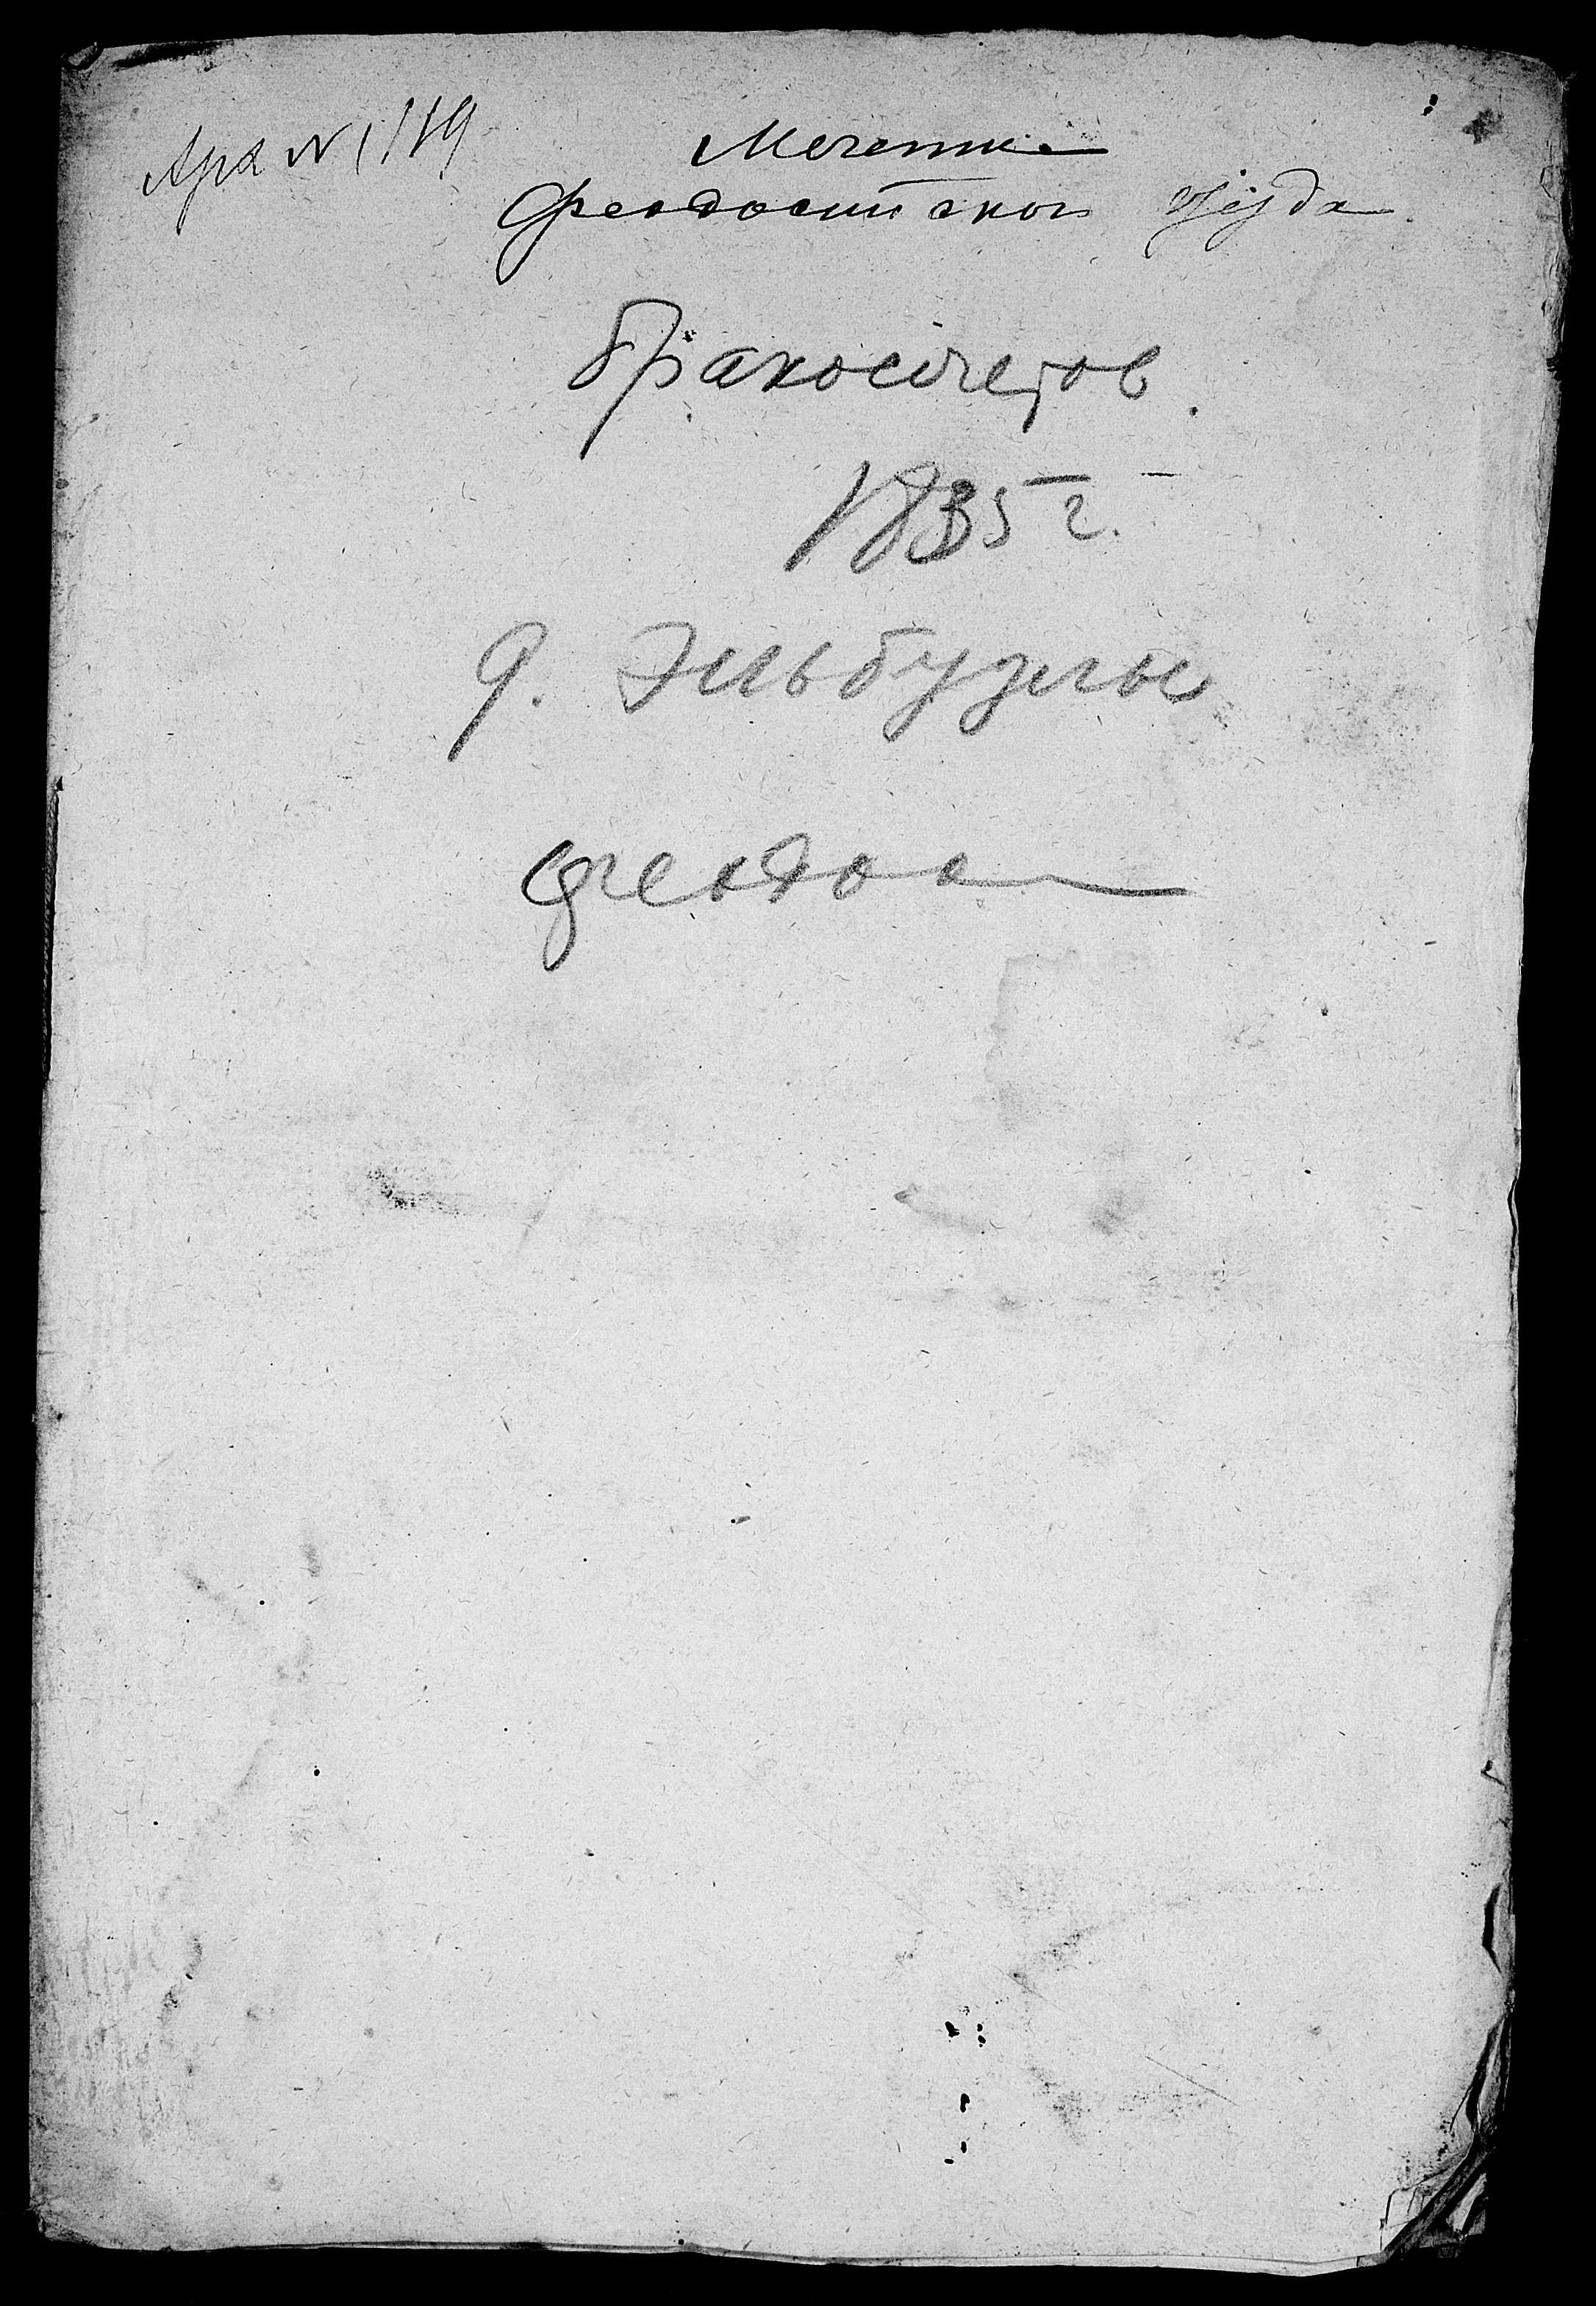 Арх N 1119
Мечети
Феодосийского уезда
бракосочетав.
1835 г.
д. Эльбузлы
Феодос